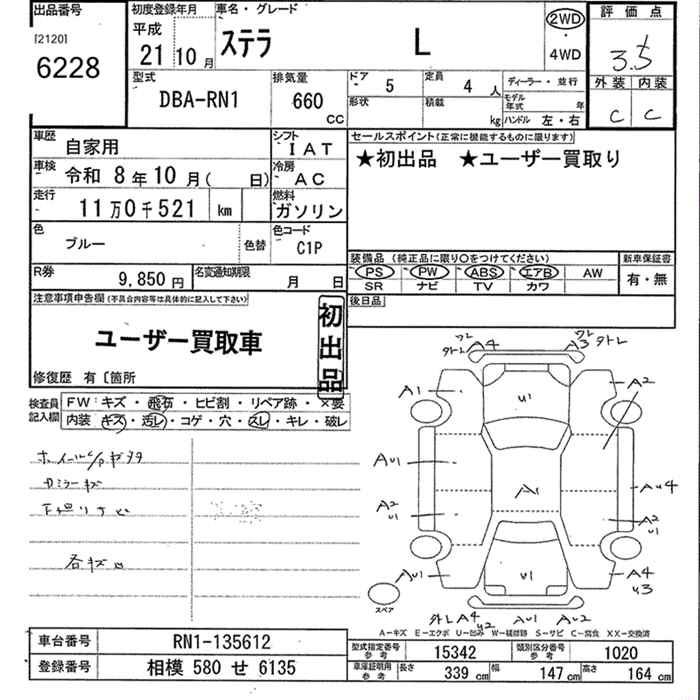 出品番号
[2120]
6228
初度登録年月
平成
21 10 月
車名・グレード
ステラ L
2WD
・
4WD
評価点
3.5
外装 内装
C C
型式
DBA-RN1
排気量
660
CC
ドア 5
定員 4 人
形状
積載 kg
ディーラー・並行
モデル年式 年
ハンドル 左・右
車歴 自家用
シフト IAT
車検 令和 8年 10月( 日)
冷房 AC
走行 11万0千521 km
燃料 ガソリン
色 ブルー 色替
色コード C1P
R券 9,850円
名変通知期限 月 日
セールスポイント(正常に機能するものに限ります)
★初出品 ★ユーザー買取り
装備品 (純正品に限り○をつけてください)
新車保証書
PS PW ABS エアB AW
SR ナビ TV カワ
有・無
後日品
注意事項申告欄(不具合内容等は具体的に記入して下さい)
ユーザー買取車
初出品
修復歴 有〔箇所
検査員記入欄
FW:キズ・飛石・ヒビ割・リペア跡・×要
内装 キズ・汚レ・コゲ・穴・スレ・キレ・破レ
各キズ凹
A4
A3
A1
A2
U1
AU1
A1
AU4
A2
U1
A2
U1
AU1
U1
A4
U3
スペア
外LA4
U2
AU1
AU2
A-キズ E-エクボ U-凹み W-補修跡 S-サビ C-腐食 XX-交換済
車台番号 RN1-135612
登録番号 相模 580 せ 6135
型式指定番号
参考
15342
類別区分番号
参考
1020
車庫証明用
参考
長さ 339 cm
幅 147 cm
高さ 164 cm